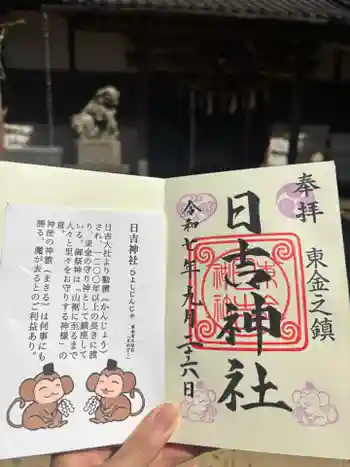 奉拝
東金之鎮
日吉神社
令和七年九月二十六日
日吉神社(ひよしじんじゃ)
日吉大社より勧請(かんじょう)
され、一二〇〇年以上の長きに渡
り、東金の守り神として鎮座して
いる。御祭神は「山裾に至るまで
人々と里々をお守りする神様」の
意。
神使の神猿(まさる)は何事にも
勝る、魔が去るとのご利益あり。